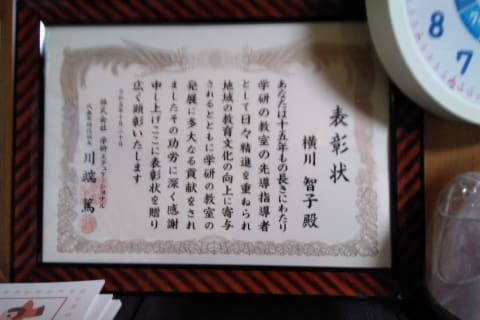 表彰状
横川 智子 殿
あなたは十五年もの長きにわたり
学研の教室の先導指導者
として日々精進を重ねられ
地域の教育文化の向上に寄与
されるとともに学研の教室の
発展に多大なる貢献をされ
ましたその功労に深く感謝
申し上げここに表彰状を贈り
広く顕彰いたします
株式会社 学研エデュケーショナル
代表取締役社長 川端 篤
8
7